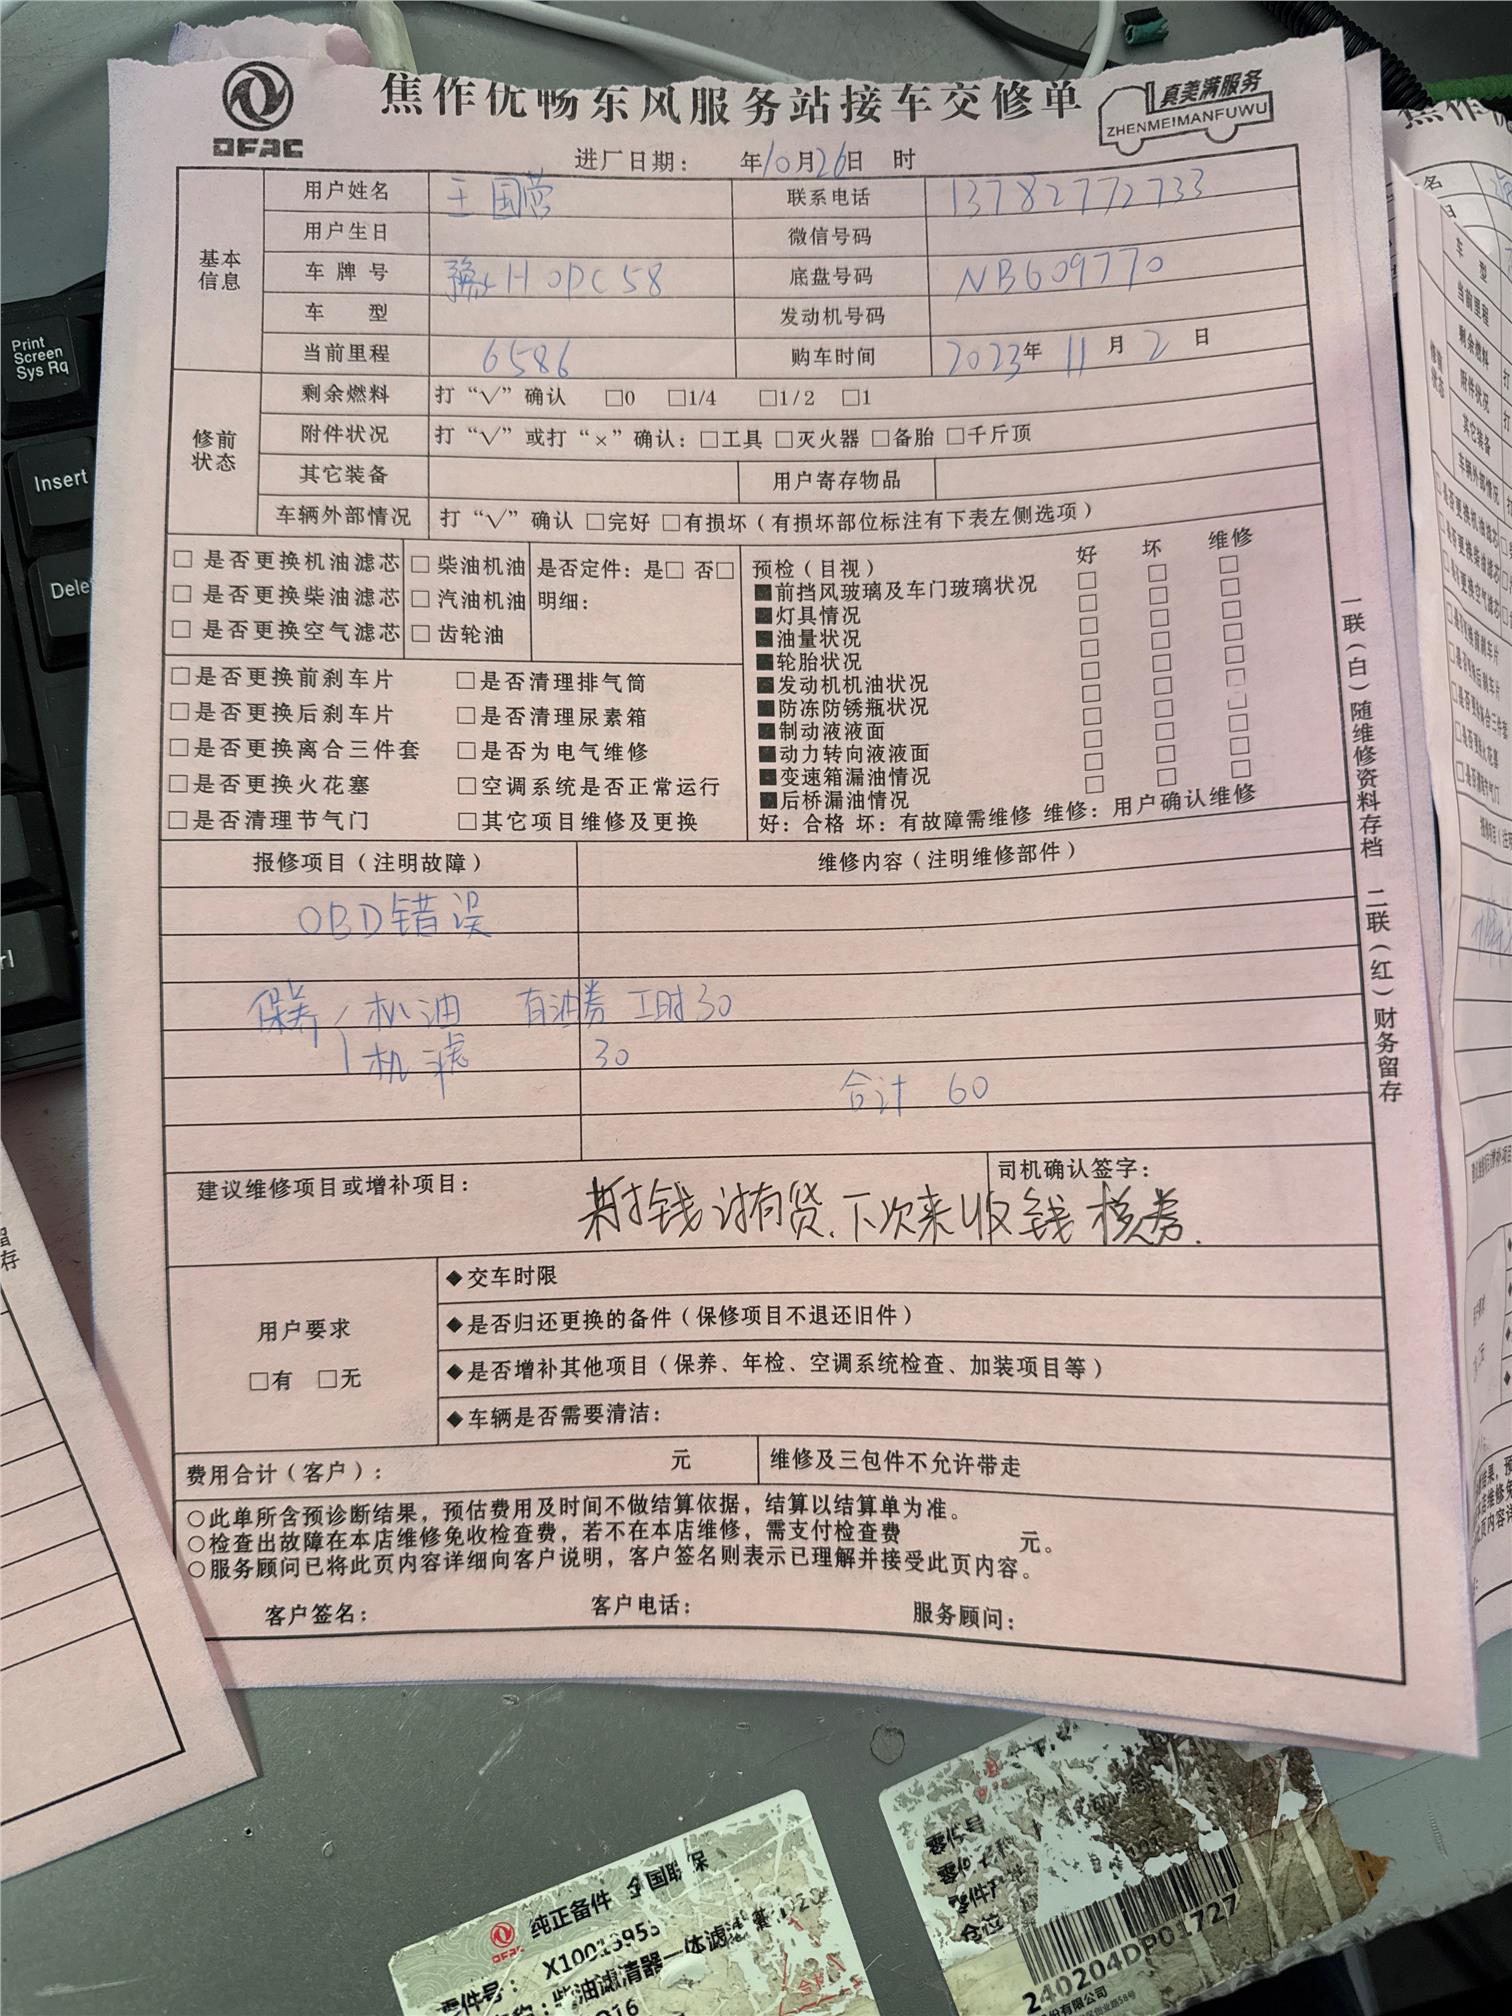 DFAC
焦作优畅东风服务站接车交修单
真美满服务
ZHENMEIMANFUWU
进厂日期: 年10月26日 时
基本信息
用户姓名 王国营 联系电话 13782772733
用户生日 微信号码
车牌号 豫H0DC58 底盘号码 NB609770
车 型 发动机号码
当前里程 6586 购车时间 2023年 11 月 2 日
修前状态
剩余燃料 打“√”确认 □0 □1/4 □1/2 □1
附件状况 打“√”或打“×”确认: □工具 □灭火器 □备胎 □千斤顶
其它装备 用户寄存物品
车辆外部情况 打“√”确认 □完好 □有损坏(有损坏部位标注有下表左侧选项)
□ 是否更换机油滤芯 □ 柴油机油 是否定件: 是□ 否□
□ 是否更换柴油滤芯 □ 汽油机油 明细:
□ 是否更换空气滤芯 □ 齿轮油
□是否更换前刹车片 □是否清理排气筒
□是否更换后刹车片 □是否清理尿素箱
□是否更换离合三件套 □是否为电气维修
□是否更换火花塞 □空调系统是否正常运行
□是否清理节气门 □其它项目维修及更换
预检(目视) 好 坏 维修
■前挡风玻璃及车门玻璃状况 □ □ □
■灯具情况 □ □ □
■油量状况 □ □ □
■轮胎状况 □ □ □
■发动机机油状况 □ □ □
■防冻防锈瓶状况 □ □ □
■制动液液面 □ □ □
■动力转向液液面 □ □ □
■变速箱漏油情况 □ □ □
■后桥漏油情况 □ □ □
好: 合格 坏: 有故障需维修 维修: 用户确认维修
报修项目(注明故障) 维修内容(注明维修部件)
OBD错误
保养 机油 有油券 工时30
机滤 30
合计 60
建议维修项目或增补项目: 司机确认签字:
钱 没有货.下次来收钱 核券.
用户要求
□有 □无
◆交车时限
◆是否归还更换的备件(保修项目不退还旧件)
◆是否增补其他项目(保养、年检、空调系统检查、加装项目等)
◆车辆是否需要清洁:
费用合计(客户): 元 维修及三包件不允许带走
○此单所含预诊断结果,预估费用及时间不做结算依据,结算以结算单为准。
○检查出故障在本店维修免收检查费,若不在本店维修,需支付检查费 元。
○服务顾问已将此页内容详细向客户说明,客户签名则表示已理解并接受此页内容。
客户签名: 客户电话: 服务顾问:
一联(白)随维修资料存档 二联(红)财务留存
Print Screen Sys Rq
Insert
纯正备件 全国联保
柴油滤清器一体滤
240204DP01727
有限公司